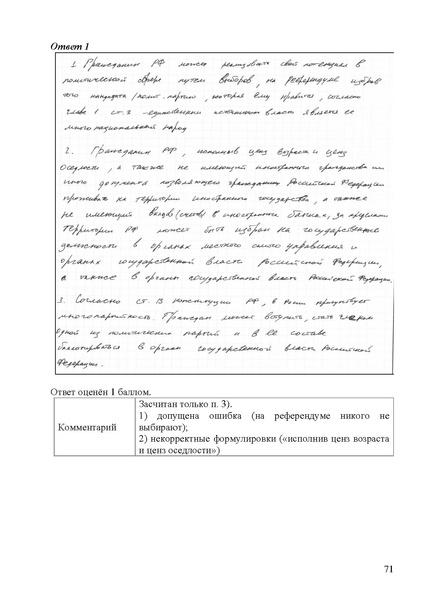 Ответ 1
1. Гражданин РФ может реализовать свой потенциал в
политической сфере путем выборов, на референдуме избрав
того кандидата /полит. партию, которая ему нравится, согласно
главе 1 ст. 3 - единственным источником власти является ее
многонациональный народ
2. Гражданин РФ, исполнив ценз возраста и ценз
оседлости, а также не имеющий иностранного гражданства или
иного документа позволяющего гражданину Российской Федерации
проживать на территории иностранного государства, а также
не имеющий вклады (счета) в иностранных банках, за пределами
территории РФ может быть избран на государственные
должности в органах местного самоуправления и
органах государственной власти Российской Федерации,
а также в органы государственной власти Российской Федерации.
3. Согласно ст. 13 Конституции РФ, в России присутствует
многопартийность. Гражданин может вступить, стать членом
одной из политических партий и в её составе
баллотироваться в органы государственной власти Российской
Федерации.
Ответ оценён 1 баллом.
Комментарий
Засчитан только п. 3).
1) допущена ошибка (на референдуме никого не
выбирают);
2) некорректные формулировки («исполнив ценз возраста
и ценз оседлости»)
71